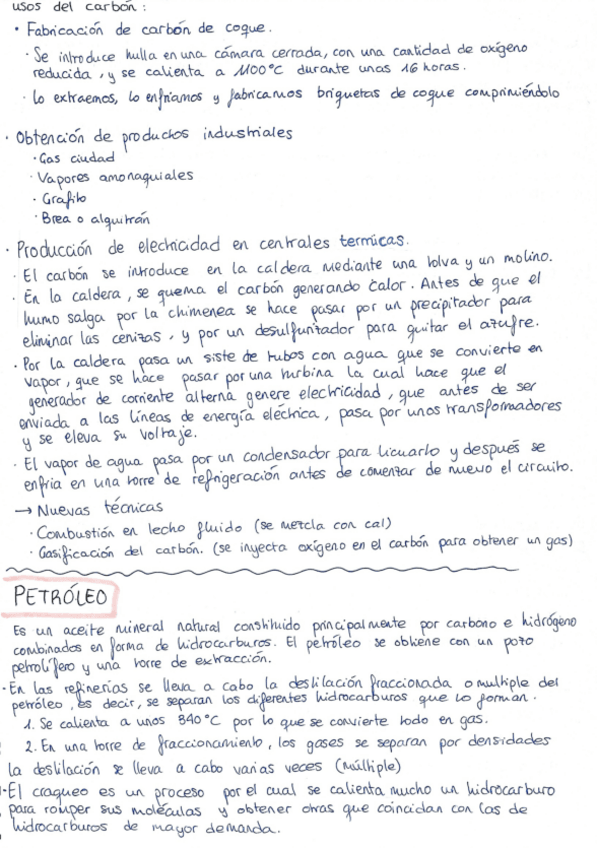 usos del carbón:
· Fabricación de carbón de coque.
· Se introduce hulla en una cámara cerrada, con una cantidad de oxígeno
reducida, y se calienta a 1100°C durante unas 16 horas.
· Lo extraemos, lo enfriamos y fabricamos briquetas de coque comprimiéndolo
· Obtención de productos industriales
· Gas ciudad
· Vapores amonaquiales
· Grafito
· Brea o alquitrán
· Producción de electricidad en centrales termicas.
· El carbón se introduce en la caldera mediante una tolva y un molino.
· En la caldera, se quema el carbón generando calor. Antes de que el
humo salga por la chimenea se hace pasar por un precipitador para
eliminar las cenizas, y por un desulfuntador para quitar el azufre.
· Por la caldera pasa un siste de tubos con agua que se convierte en
vapor, que se hace pasar por una turbina la cual hace que el
generador de corriente alterna genere electricidad, que antes de ser
enviada a las líneas de energía eléctrica, pasa por unos transformadores
y se eleva su voltaje.
· El vapor de agua pasa por un condensador para licuarlo y después se
enfria en una torre de refrigeración antes de comenzar de nuevo el circuito.
→ Nuevas técnicas
· Combustión en lecho fluido (se mezcla con cal)
· Gasificación del carbón. (se inyecta oxígeno en el carbón para obtener un gas)
PETRÓLEO
Es un aceite mineral natural constituido principalmente por carbono e hidrógeno
combinados en forma de hidrocarburos. El petróleo se obtiene con un pozo
petrolífero y una torre de extracción.
· En las refinerías se lleva a cabo la destilación fraccionada o multiple del
petróleo, es decir, se separan los diferentes hidrocarburos que lo forman.
1. Se calienta a unos 340°C por lo que se convierte todo en gas.
2. En una torre de fraccionamiento, los gases se separan por densidades
la destilación se lleva a cabo varias veces (múltiple)
· El craqueo es un proceso por el cual se calienta mucho un hidrocarburo
para romper sus moléculas y obtener otras que coincidan con las de
hidrocarburos de mayor demanda.